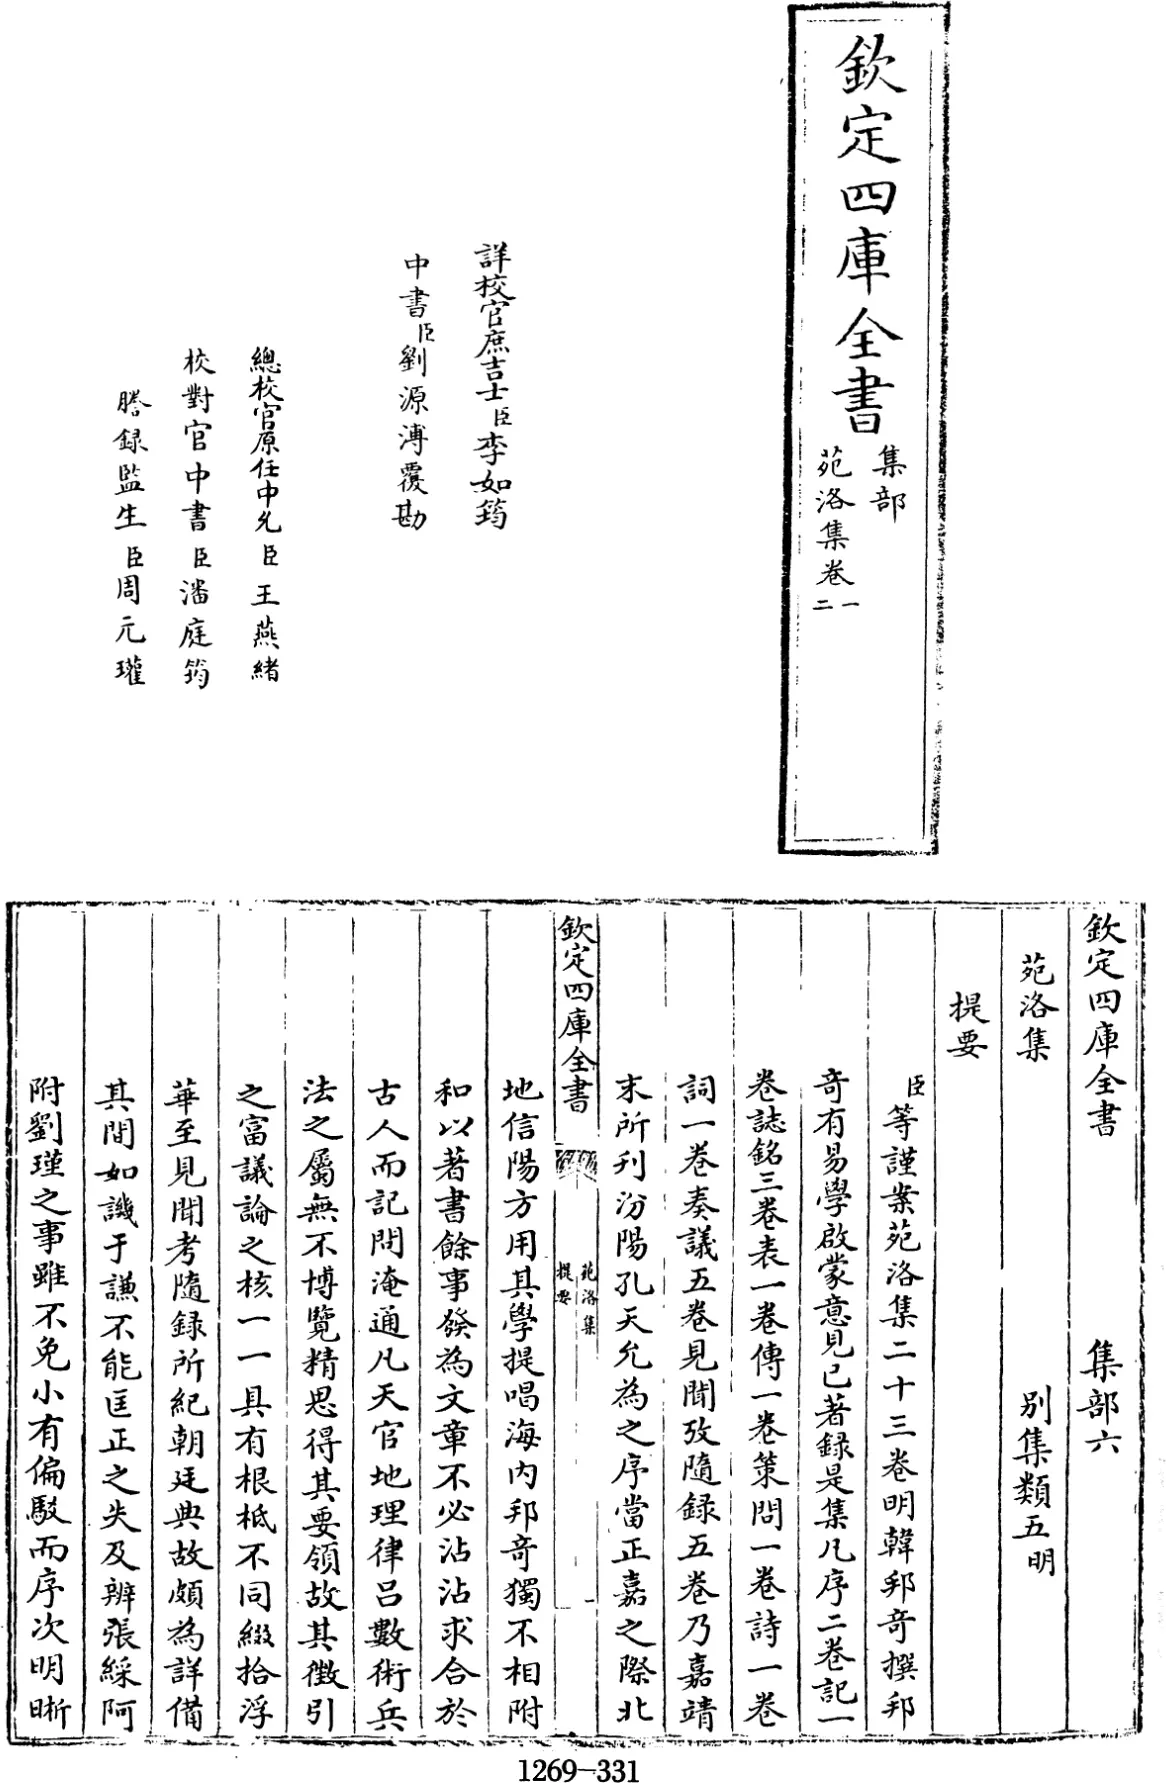 欽定四庫全書
集部
苑洛集卷一
二
詳校官庶吉士臣李如筠
中書臣劉源溥覆勘
總校官原任中允臣王燕緒
校對官中書臣潘庭筠
謄録監生臣周元瓘
欽定四庫全書 集部六
苑洛集 别集類五明
提要
臣等謹案苑洛集二十三卷明韓邦奇撰邦
奇有易學啟蒙意見已著録是集凡序二卷記一
卷誌銘三卷表一卷傳一卷策問一卷詩一卷
詞一卷奏議五卷見聞攷隨録五卷乃嘉靖
末所刊汾陽孔天允為之序當正嘉之際北
欽定四庫全書
苑洛集
提要
一
地信陽方用其學提唱海内邦奇獨不相附
和以著書餘事發為文章不必沾沾求合於
古人而記問淹通凡天官地理律吕數術兵
法之屬無不博覽精思得其要領故其徴引
之富議論之核一一具有根柢不同綴拾浮
華至見聞考隨録所紀朝廷典故頗為詳備
其間如譏于謙不能匡正之失及辨張綵阿
附劉瑾之事雖不免小有偏駁而序次明晰
1269-331